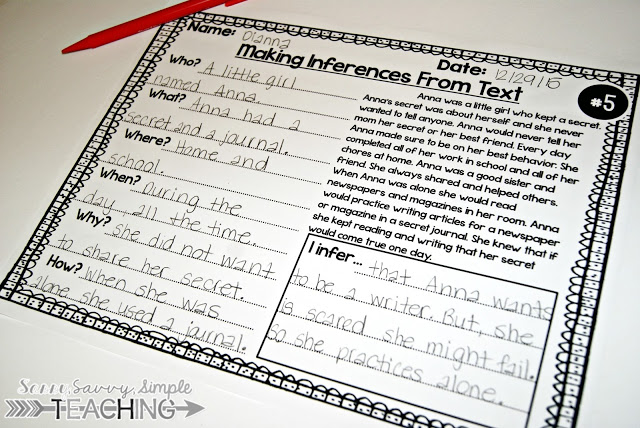 Name: Dianna
Date: 12/29/15
Making Inferences From Text
#5
Who? A little girl
named Anna.
What? Anna had a
secret and a journal.
Where? Home and
school.
When? During the
day, all the time.
Why? She did not want
to share her secret.
How? When she was
alone she used a journal.
Anna was a little girl who kept a secret.
Anna's secret was about herself and she never
wanted to tell anyone. Anna would never tell her
mom her secret or her best friend. Every day
Anna made sure to be on her best behavior. She
completed all of her work in school and all of her
chores at home. Anna was a good sister and
friend. She always shared and helped others.
When Anna was alone she would read
newspapers and magazines in her room. Anna
would practice writing articles for a newspaper
or magazine in a secret journal. She knew that if
she kept reading and writing that her secret
would come true one day.
I infer... that Anna wants
to be a writer. But, she
is scared she might fail.
so she practices alone.
Some, Savvy, Simple
TEACHING